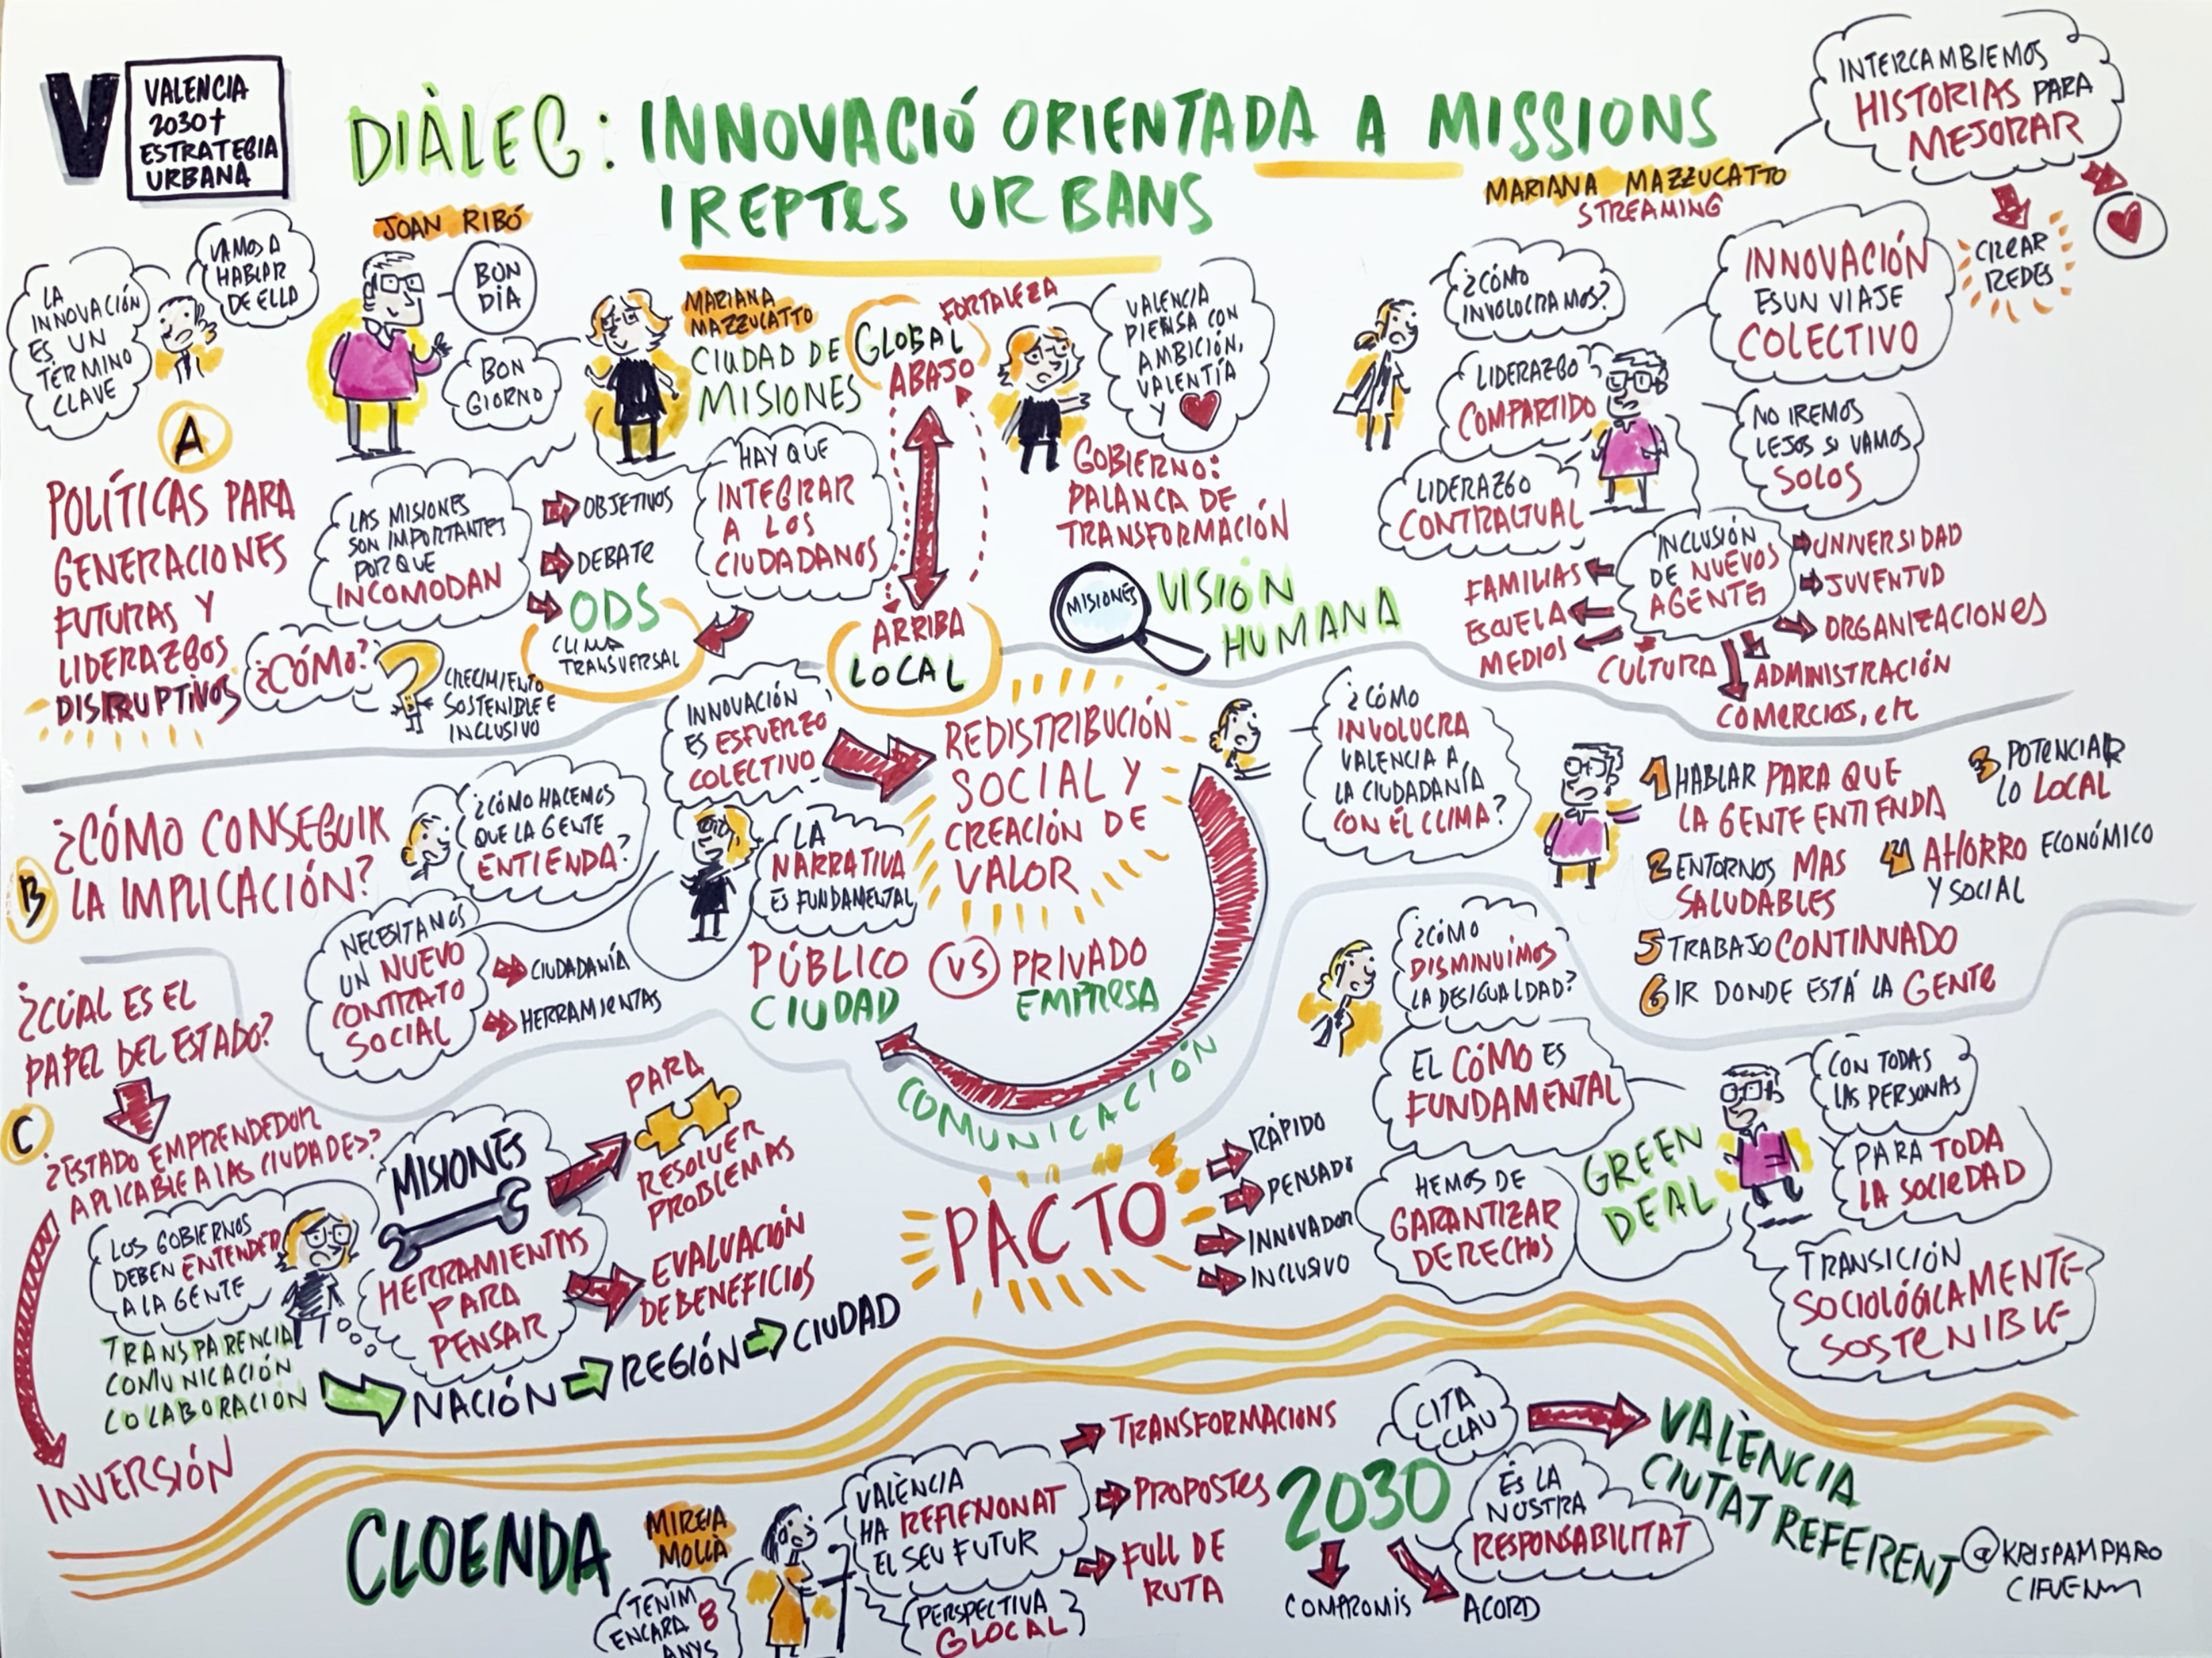 V
VALENCIA
2030+
ESTRATEGIA
URBANA
DIÀLEG: INNOVACIÓ ORIENTADA A MISSIONS
I REPTES URBANS
INTERCAMBIEMOS
HISTORIAS PARA
MEJORAR
MARIANA MAZZUCATTO
STREAMING
CREAR
REDES
LA
INNOVACIÓN
ES UN
TÉRMINO
CLAVE
VAMOS A
HABLAR
DE ELLA
JOAN RIBÓ
BON
DIA
BON
GIORNO
MARIANA
MAZZUCATTO
CIUDAD DE
MISIONES
GLOBAL
ABAJO
FORTALEZA
VALENCIA
PIENSA CON
AMBICIÓN,
VALENTÍA
Y
¿CÓMO
INVOLUCRAMOS?
LIDERAZGO
COMPARTIDO
LIDERAZGO
CONTRACTUAL
INNOVACIÓN
ES UN VIAJE
COLECTIVO
NO IREMOS
LEJOS SI VAMOS
SOLOS
A
POLÍTICAS PARA
GENERACIONES
FUTURAS Y
LIDERAZGOS
DISRUPTIVOS
LAS MISIONES
SON IMPORTANTES
POR QUE
INCOMODAN
OBJETIVOS
DEBATE
ODS
CLIMA
TRANSVERSAL
HAY QUE
INTEGRAR
A LOS
CIUDADANOS
¿CÓMO?
CRECIMIENTO
SOSTENIBLE E
INCLUSIVO
ARRIBA
LOCAL
GOBIERNO:
PALANCA DE
TRANSFORMACIÓN
MISIONES
VISIÓN
HUMANA
INCLUSIÓN
DE NUEVOS
AGENTES
FAMILIAS
ESCUELA
MEDIOS
CULTURA
UNIVERSIDAD
JUVENTUD
ORGANIZACIONES
ADMINISTRACIÓN
COMERCIOS, etc
B
¿CÓMO CONSEGUIR
LA IMPLICACIÓN?
¿CÓMO HACEMOS
QUE LA GENTE
ENTIENDA?
INNOVACIÓN
ES ESFUERZO
COLECTIVO
LA
NARRATIVA
ES FUNDAMENTAL
REDISTRIBUCIÓN
SOCIAL Y
CREACIÓN DE
VALOR
NECESITAMOS
UN NUEVO
CONTRATO
SOCIAL
CIUDADANÍA
HERRAMIENTAS
PÚBLICO VS PRIVADO
CIUDAD EMPRESA
COMUNICACIÓN
¿CÓMO
INVOLUCRA
VALENCIA A
LA CIUDADANÍA
CON EL CLIMA?
1 HABLAR PARA QUE
LA GENTE ENTIENDA
2 ENTORNOS MAS
SALUDABLES
3 POTENCIAR
LO LOCAL
4 AHORRO ECONÓMICO
Y SOCIAL
5 TRABAJO CONTINUADO
6 IR DONDE ESTÁ LA GENTE
C
¿CUAL ES EL
PAPEL DEL ESTADO?
¿ESTADO EMPRENDEDOR
APLICABLE A LAS CIUDADES?
LOS GOBIERNOS
DEBEN ENTENDER
A LA GENTE
TRANSPARENCIA
COMUNICACIÓN
COLABORACIÓN
INVERSIÓN
MISIONES
HERRAMIENTAS
PARA
PENSAR
PARA
RESOLVER
PROBLEMAS
EVALUACIÓN
DE BENEFICIOS
NACIÓN
REGIÓN
CIUDAD
PACTO
RÁPIDO
PENSADO
INNOVADOR
INCLUSIVO
¿CÓMO
DISMINUIMOS
LA DESIGUALDAD?
EL CÓMO ES
FUNDAMENTAL
HEMOS DE
GARANTIZAR
DERECHOS
GREEN
DEAL
CON TODAS
LAS PERSONAS
PARA TODA
LA SOCIEDAD
TRANSICIÓN
SOCIOLÓGICAMENTE
SOSTENIBLE
CLOENDA
MIREIA
MOLLA
TENIM
ENCARA 8
ANYS
VALÈNCIA
HA REFLEXIONAT
EL SEU FUTUR
PERSPECTIVA
GLOCAL
TRANSFORMACIONS
PROPOSTES
FULL DE
RUTA
2030
COMPROMIS
ACORD
CITA
CLAU
ÉS LA
NOSTRA
RESPONSABILITAT
VALÈNCIA
CIUTAT REFERENT
@KRISPAMPARO